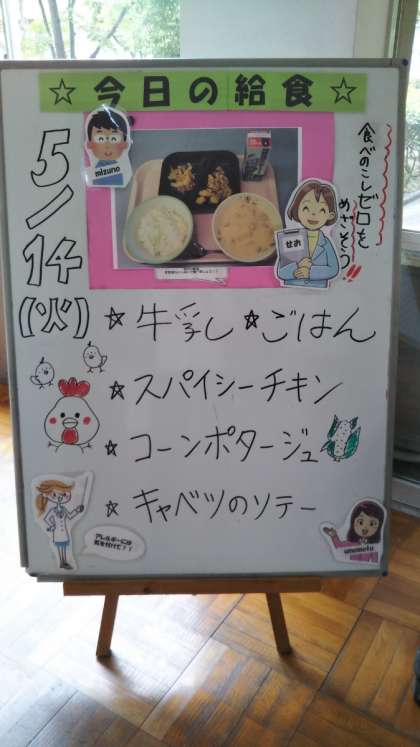 ☆今日の給食☆
5/14
(火)
mizuno
食べのこしゼロを
めざそう!!
せお
☆牛乳 ☆ごはん
☆スパイシーチキン
☆コーンポタージュ
☆キャベツのソテー
アレルギーには
気を付けて!!
umemoto